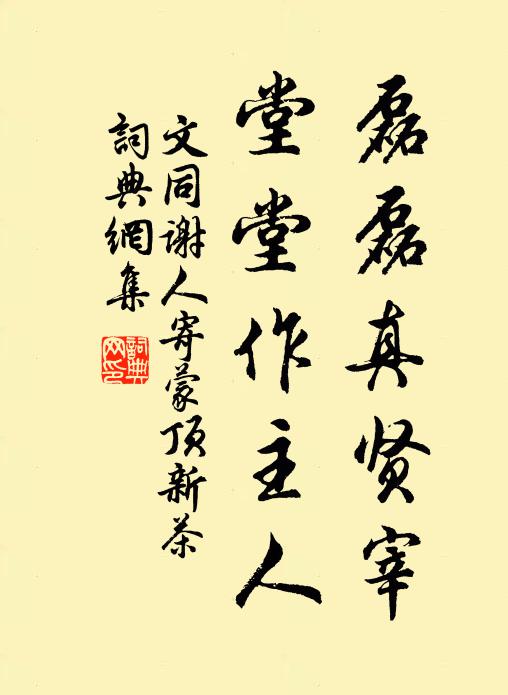 磊磊真贤宰
堂堂作主人
文同谢人寄蒙顶新茶
詞典網集
詞典
网印